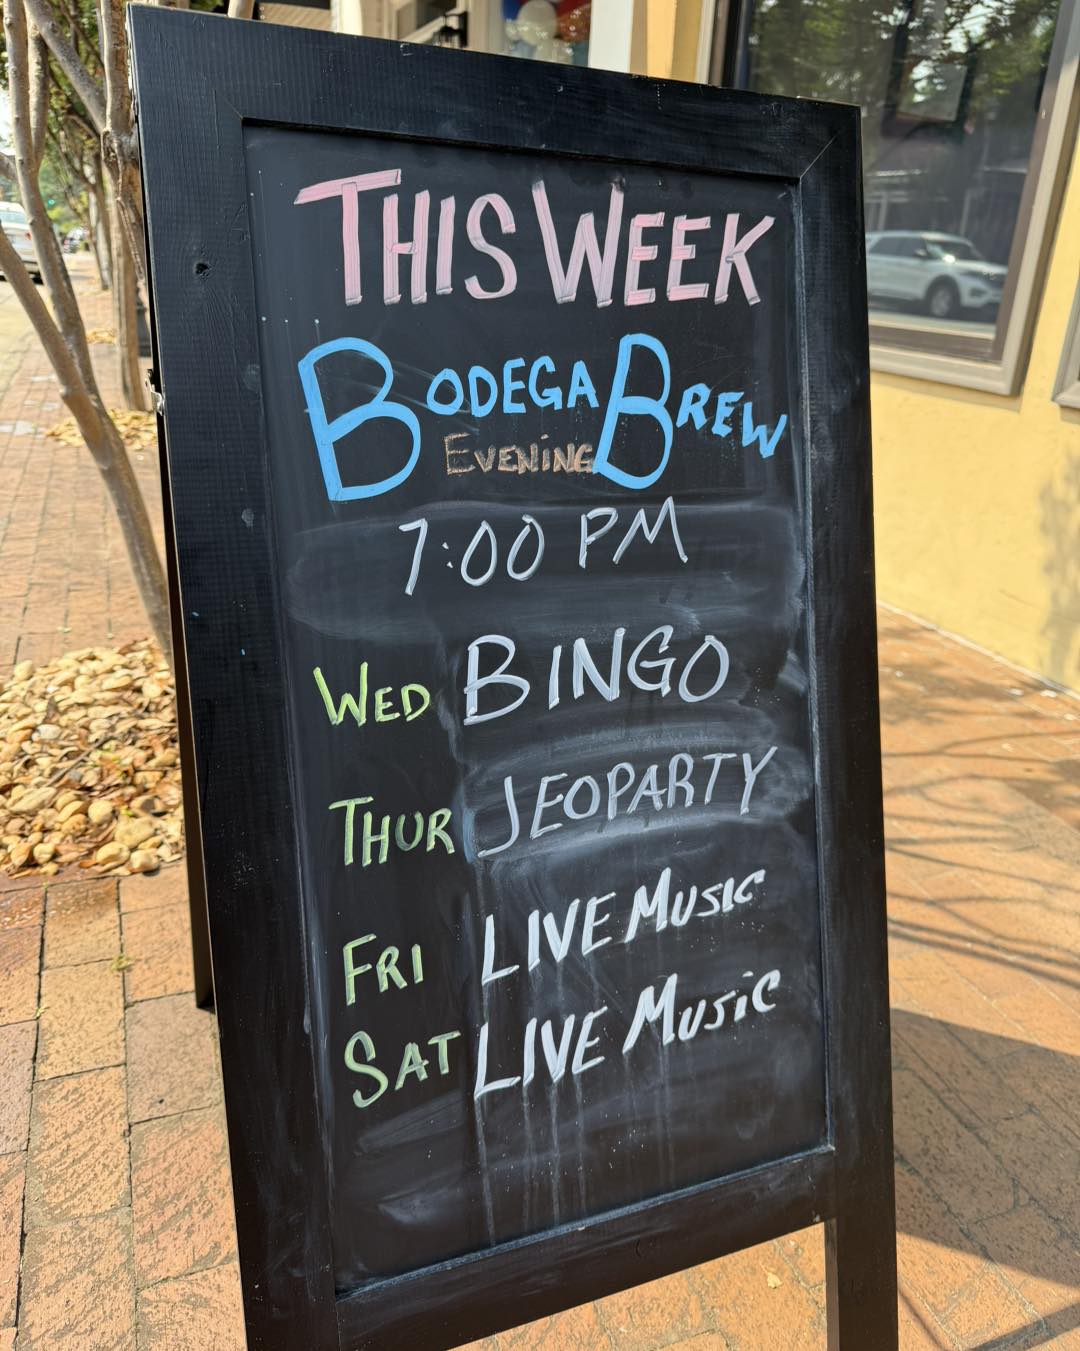 THIS WEEK
BODEGA BREW
EVENiNG
7:00 PM
WED BINGO
THUR JEOPARTY
FRI LIVE MUSIC
SAT LIVE MUSiC